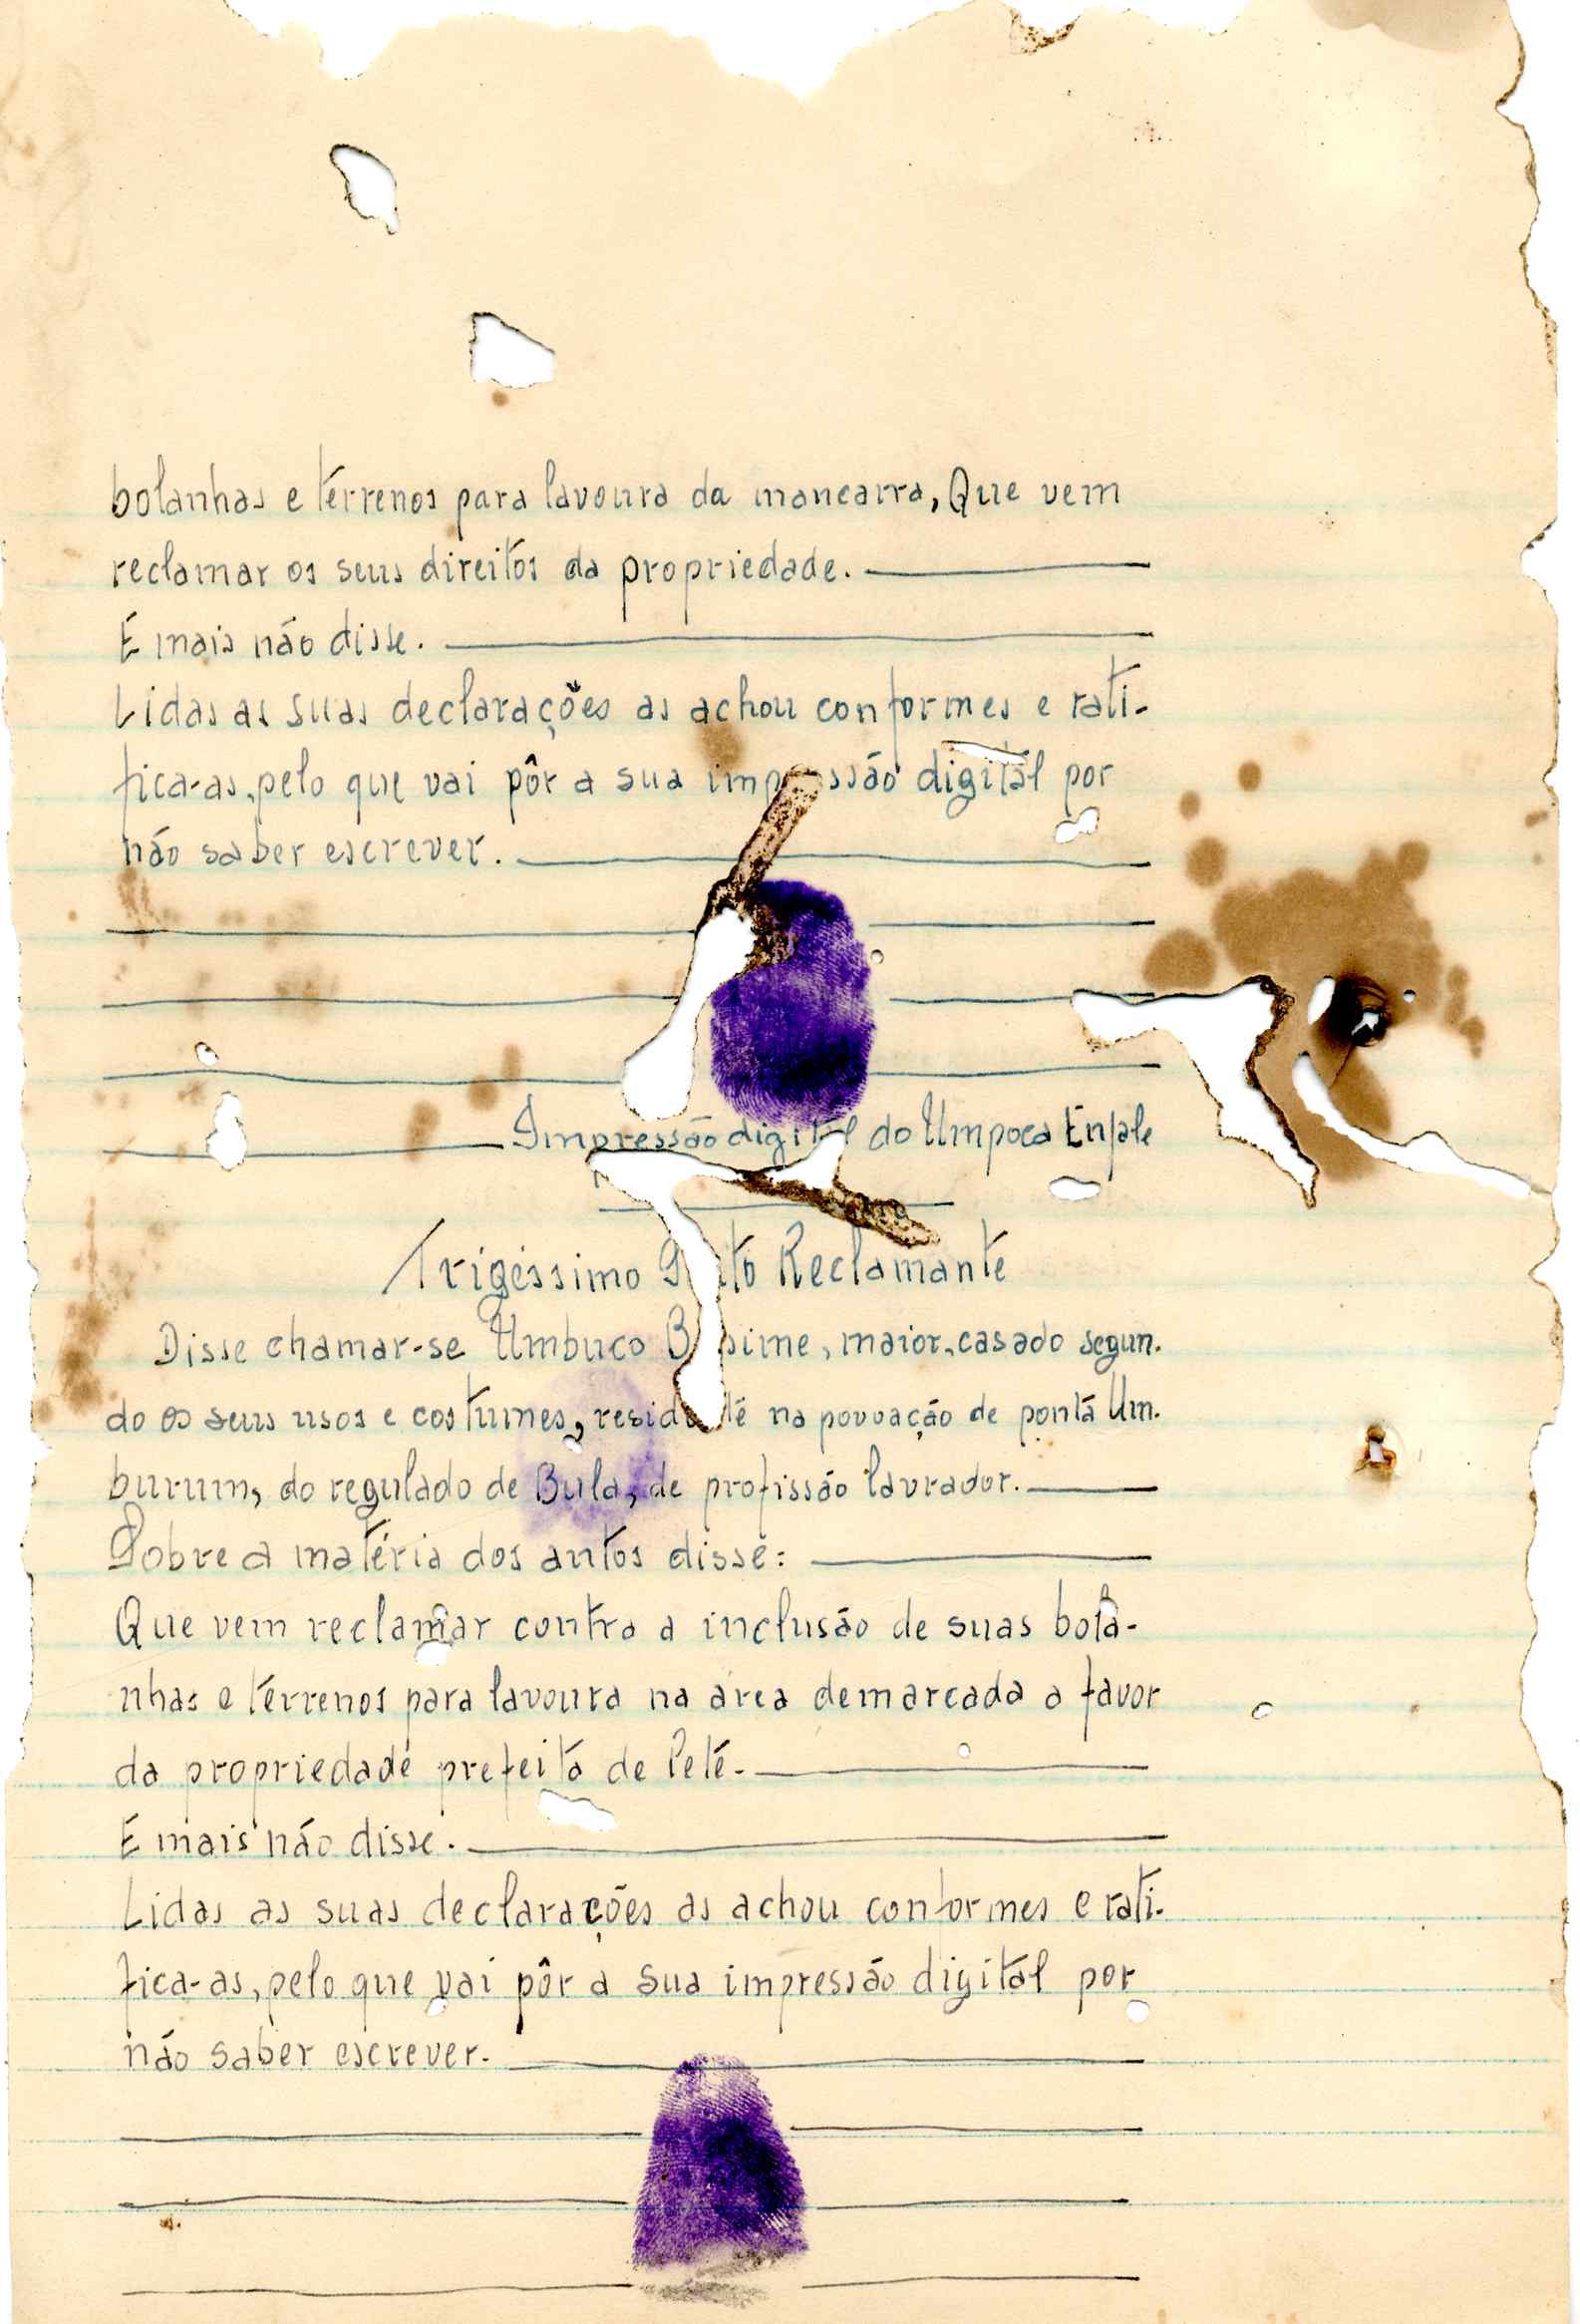 bolanhas e terrenos para lavoura da mancarra, Que vem
reclamar os seus direitos da propriedade.
E mais não disse.
Lidas as suas declarações as achou conformes e rati-
fica-as, pelo que vai pôr a sua impressão digitál por
não saber escrever.
Impressão digital do Umpoca Enjale
Trigéssimo Reclamante
Disse chamar-se Umbuco maior, casado segun-
do os seus usos e costumes, na povoação de ponta Um-
burum, do regulado de Bula, de profissão lavrador.
Sobre a matéria dos autos disse:
Que vem reclamar contra a inclusão de suas bola-
nhas e terrenos para lavoura na área demarcada a favor
da propriedade prefeita de Peté.
E mais não disse.
Lidas as suas declarações as achou conformes e rati-
fica-as, pelo que vai pôr a sua impressão digitál por
não saber escrever.